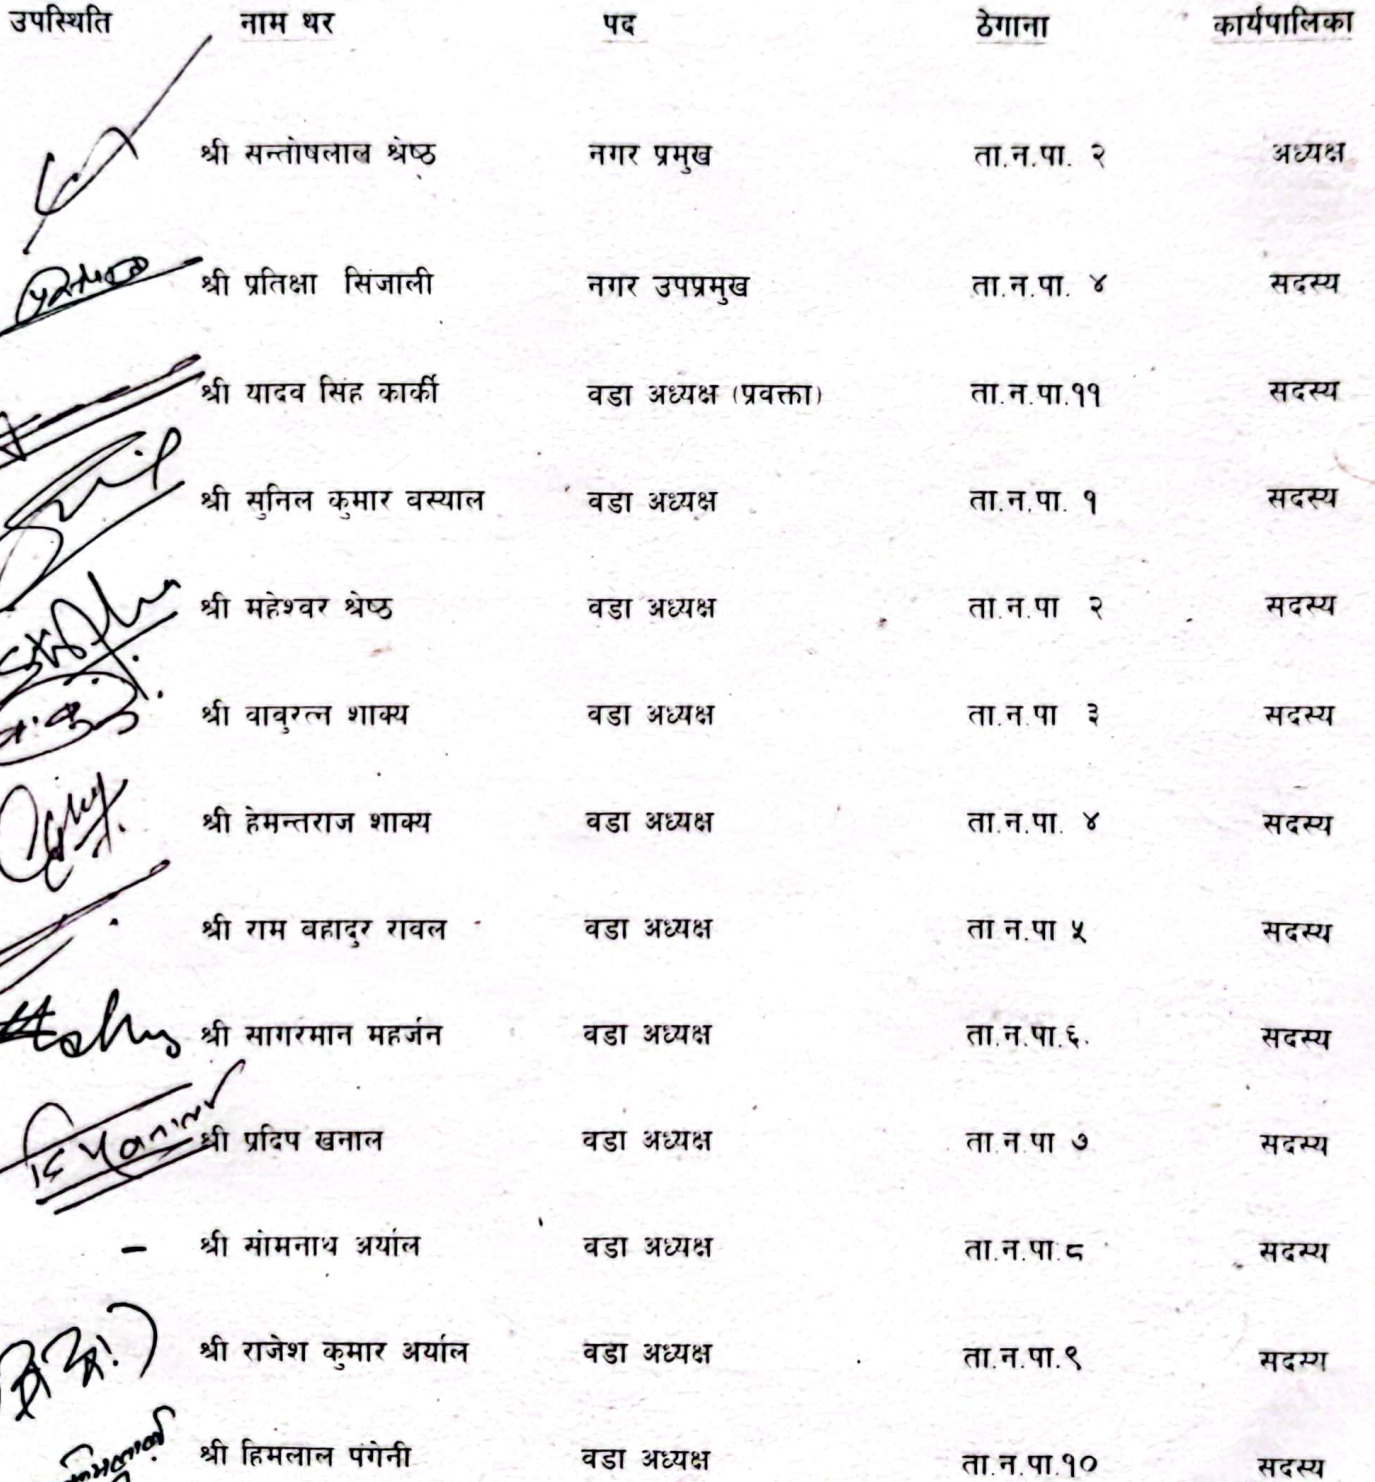 उपस्थिति नाम थर पद ठेगाना कार्यपालिका
श्री सन्तोषलाल श्रेष्ठ नगर प्रमुख ता.न.पा. २ अध्यक्ष
श्री प्रतिक्षा सिंजाली नगर उपप्रमुख ता.न.पा. ४ सदस्य
श्री यादव सिंह कार्की वडा अध्यक्ष (प्रवक्ता) ता.न.पा.११ सदस्य
श्री सुनिल कुमार वस्याल वडा अध्यक्ष ता.न.पा. १ सदस्य
श्री महेश्वर श्रेष्ठ वडा अध्यक्ष ता.न.पा २ सदस्य
श्री वावुरत्न शाक्य वडा अध्यक्ष ता.न.पा ३ सदस्य
श्री हेमन्तराज शाक्य वडा अध्यक्ष ता.न.पा. ४ सदस्य
श्री राम वहादुर रावल वडा अध्यक्ष ता.न.पा ५ सदस्य
श्री सागरमान महर्जन वडा अध्यक्ष ता.न.पा.६. सदस्य
श्री प्रदिप खनाल वडा अध्यक्ष ता.न.पा ७ सदस्य
– श्री सोमनाथ अर्याल वडा अध्यक्ष ता.न.पा.८ सदस्य
श्री राजेश कुमार अर्याल वडा अध्यक्ष ता.न.पा.९ सदस्य
श्री हिमलाल पंगेनी वडा अध्यक्ष ता.न.पा.१० सदस्य